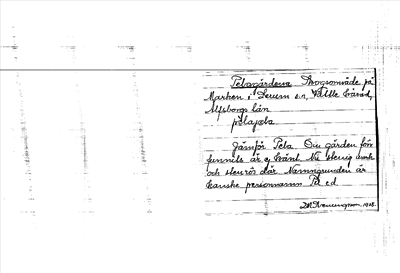 Pelagärdena Skogsområde på
Marken i Lerum s:n, Vättle härad,
Älfsborgs län
pèlajæla
Jämför Pela. Om gården för
funnits är ej känt. Nu stenig mark
och stenrös där. Namngrunden är
kanske personnamn Pel e d
1928.